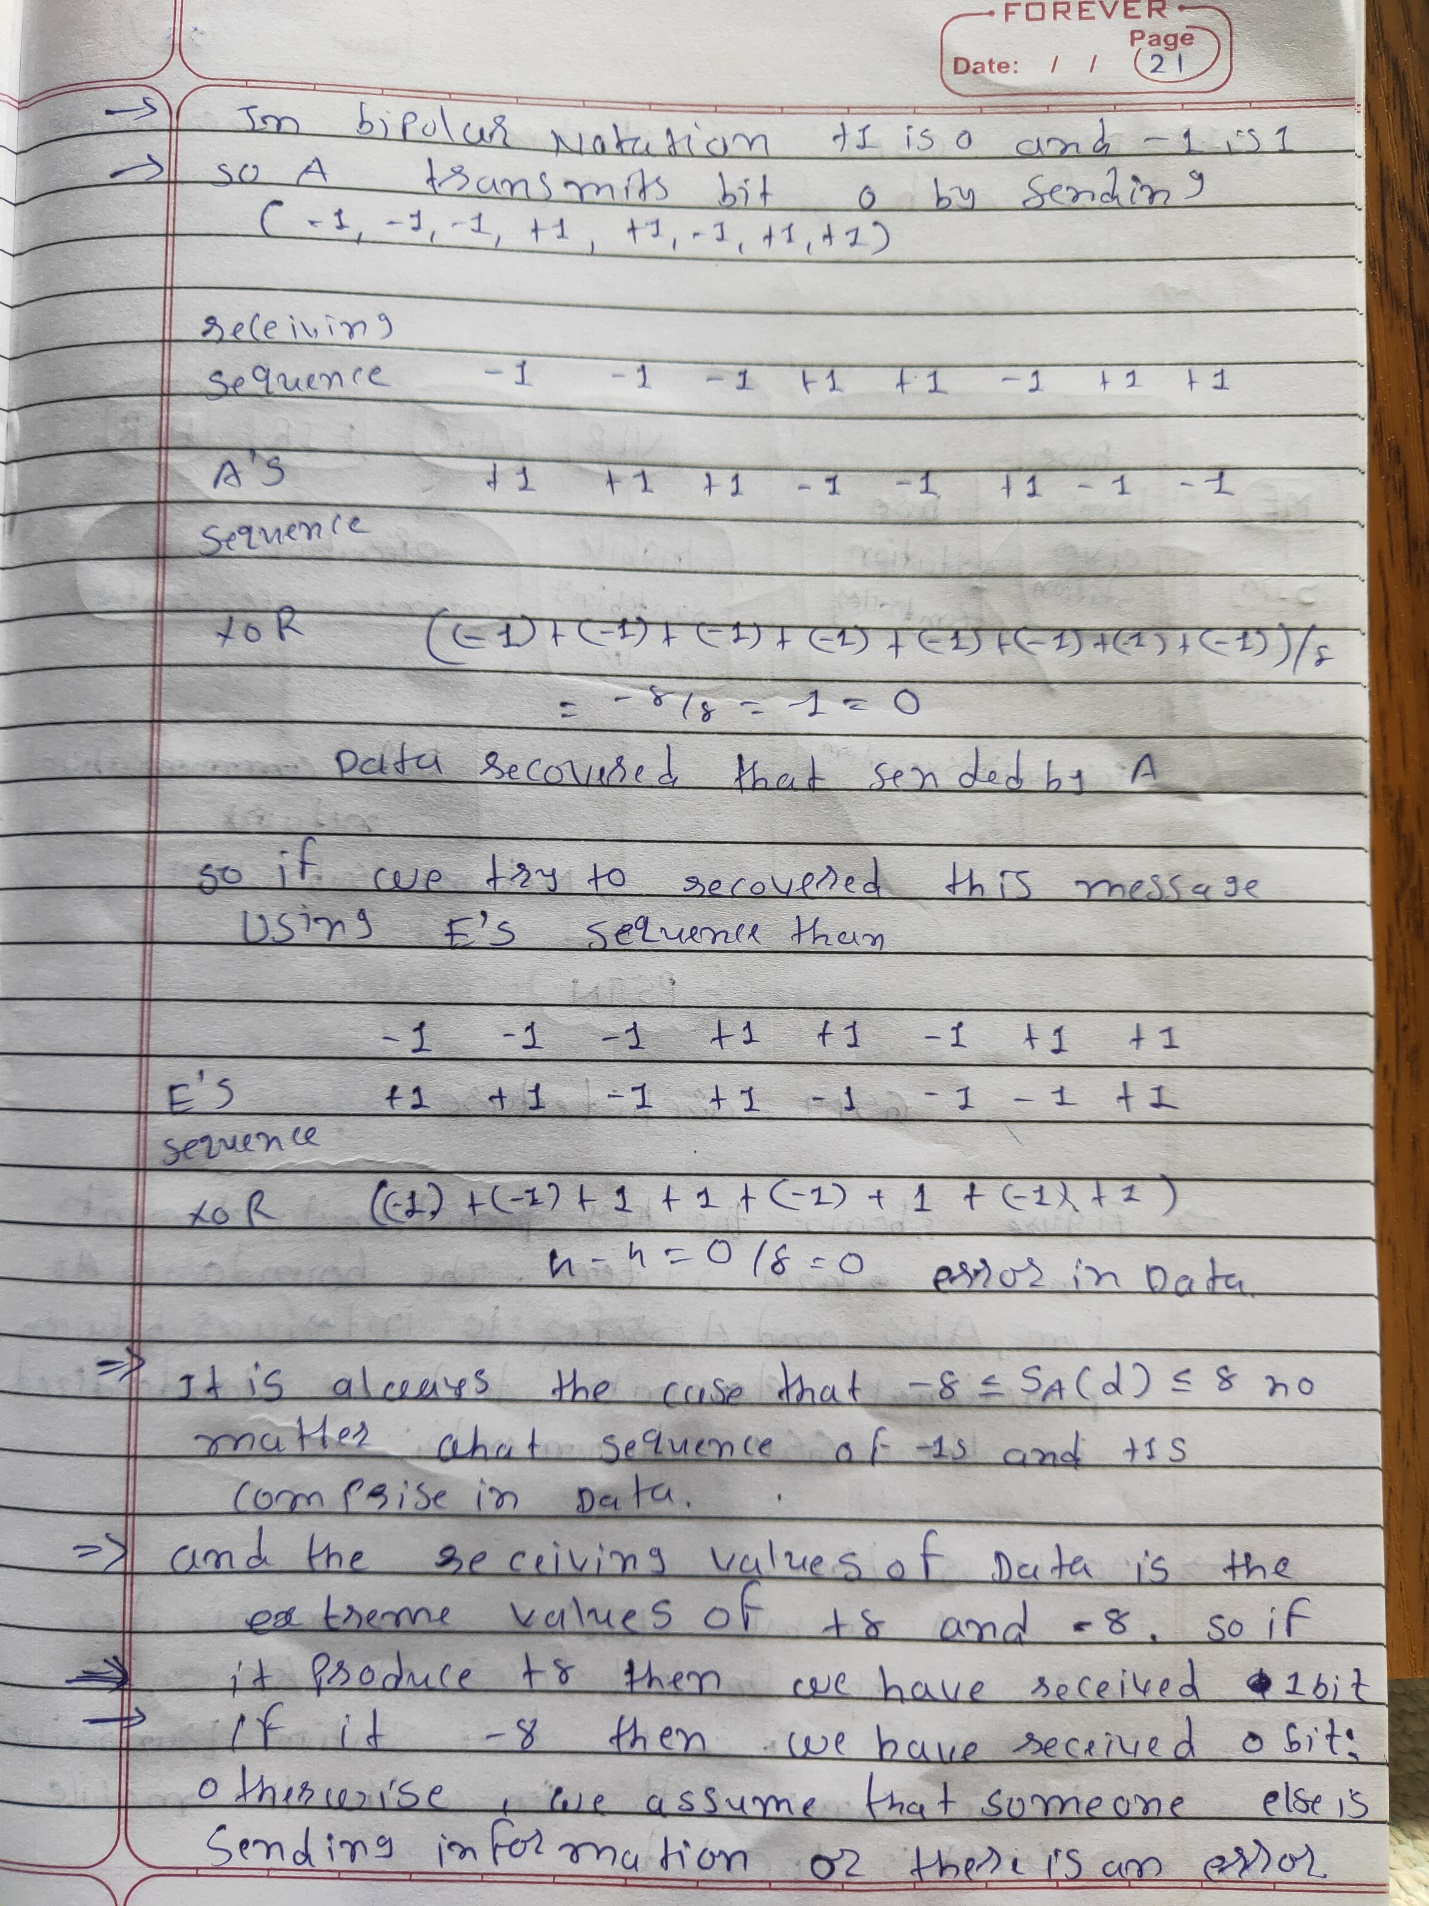 FOREVER
Page
Date: / / 21
→ In bipolar Notation +1 is 0 and -1 is 1
→ so A transmits bit 0 by sending
(-1, -1, -1, +1, +1, -1, +1, +1)
receiving
sequence -1 -1 -1 +1 +1 -1 +1 +1
A's +1 +1 +1 -1 -1 +1 -1 -1
sequence
XOR ((-1)+(-1)+(-1)+(-1)+(-1)+(-1)+(-1)+(-1))/8
= -8/8 = -1 = 0
Data recovered that sended by A
so if we try to recovered this message
Using E's sequence than
-1 -1 -1 +1 +1 -1 +1 +1
E's +1 +1 -1 +1 -1 -1 -1 +1
sequence
XOR ((-1)+(-1)+1+1+(-1)+1+(-1)+1)
4-4=0/8=0 error in Data.
⇒ It is always the case that -8 ≤ SA(d) ≤ 8 no
matter what sequence of -1s and +1s
comprise in Data.
⇒ and the receiving values of Data is the
extreme values of +8 and -8. so if
⇒ it produce +8 then we have received 1 bit
→ if it -8 then we have received 0 bit;
otherwise, we assume that someone else is
sending information or there is an error